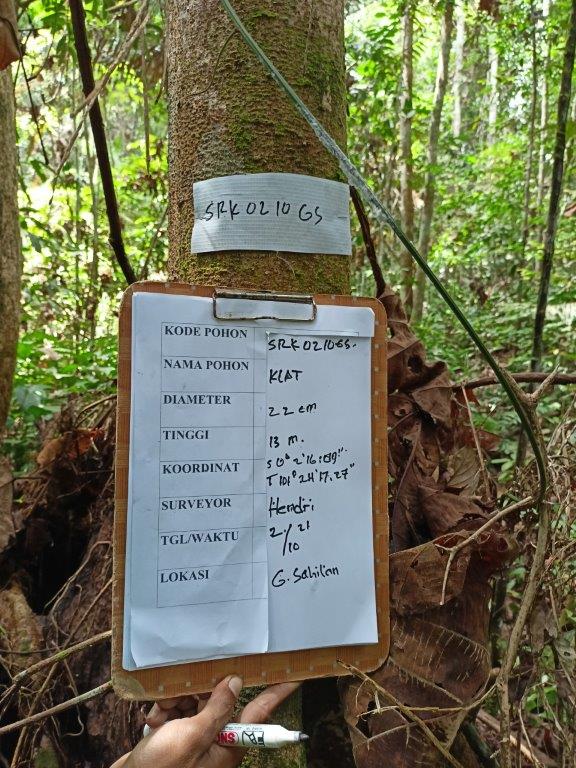 SRK 0210 GS
KODE POHON SRK 0210 GS.
NAMA POHON KLAT
DIAMETER 22 cm
TINGGI 13 m.
KOORDINAT S 0° 2' 16.099".
T 101° 24' 17.27"
SURVEYOR Hendri
TGL/WAKTU 2/10 21
LOKASI G. Sahilan
SN